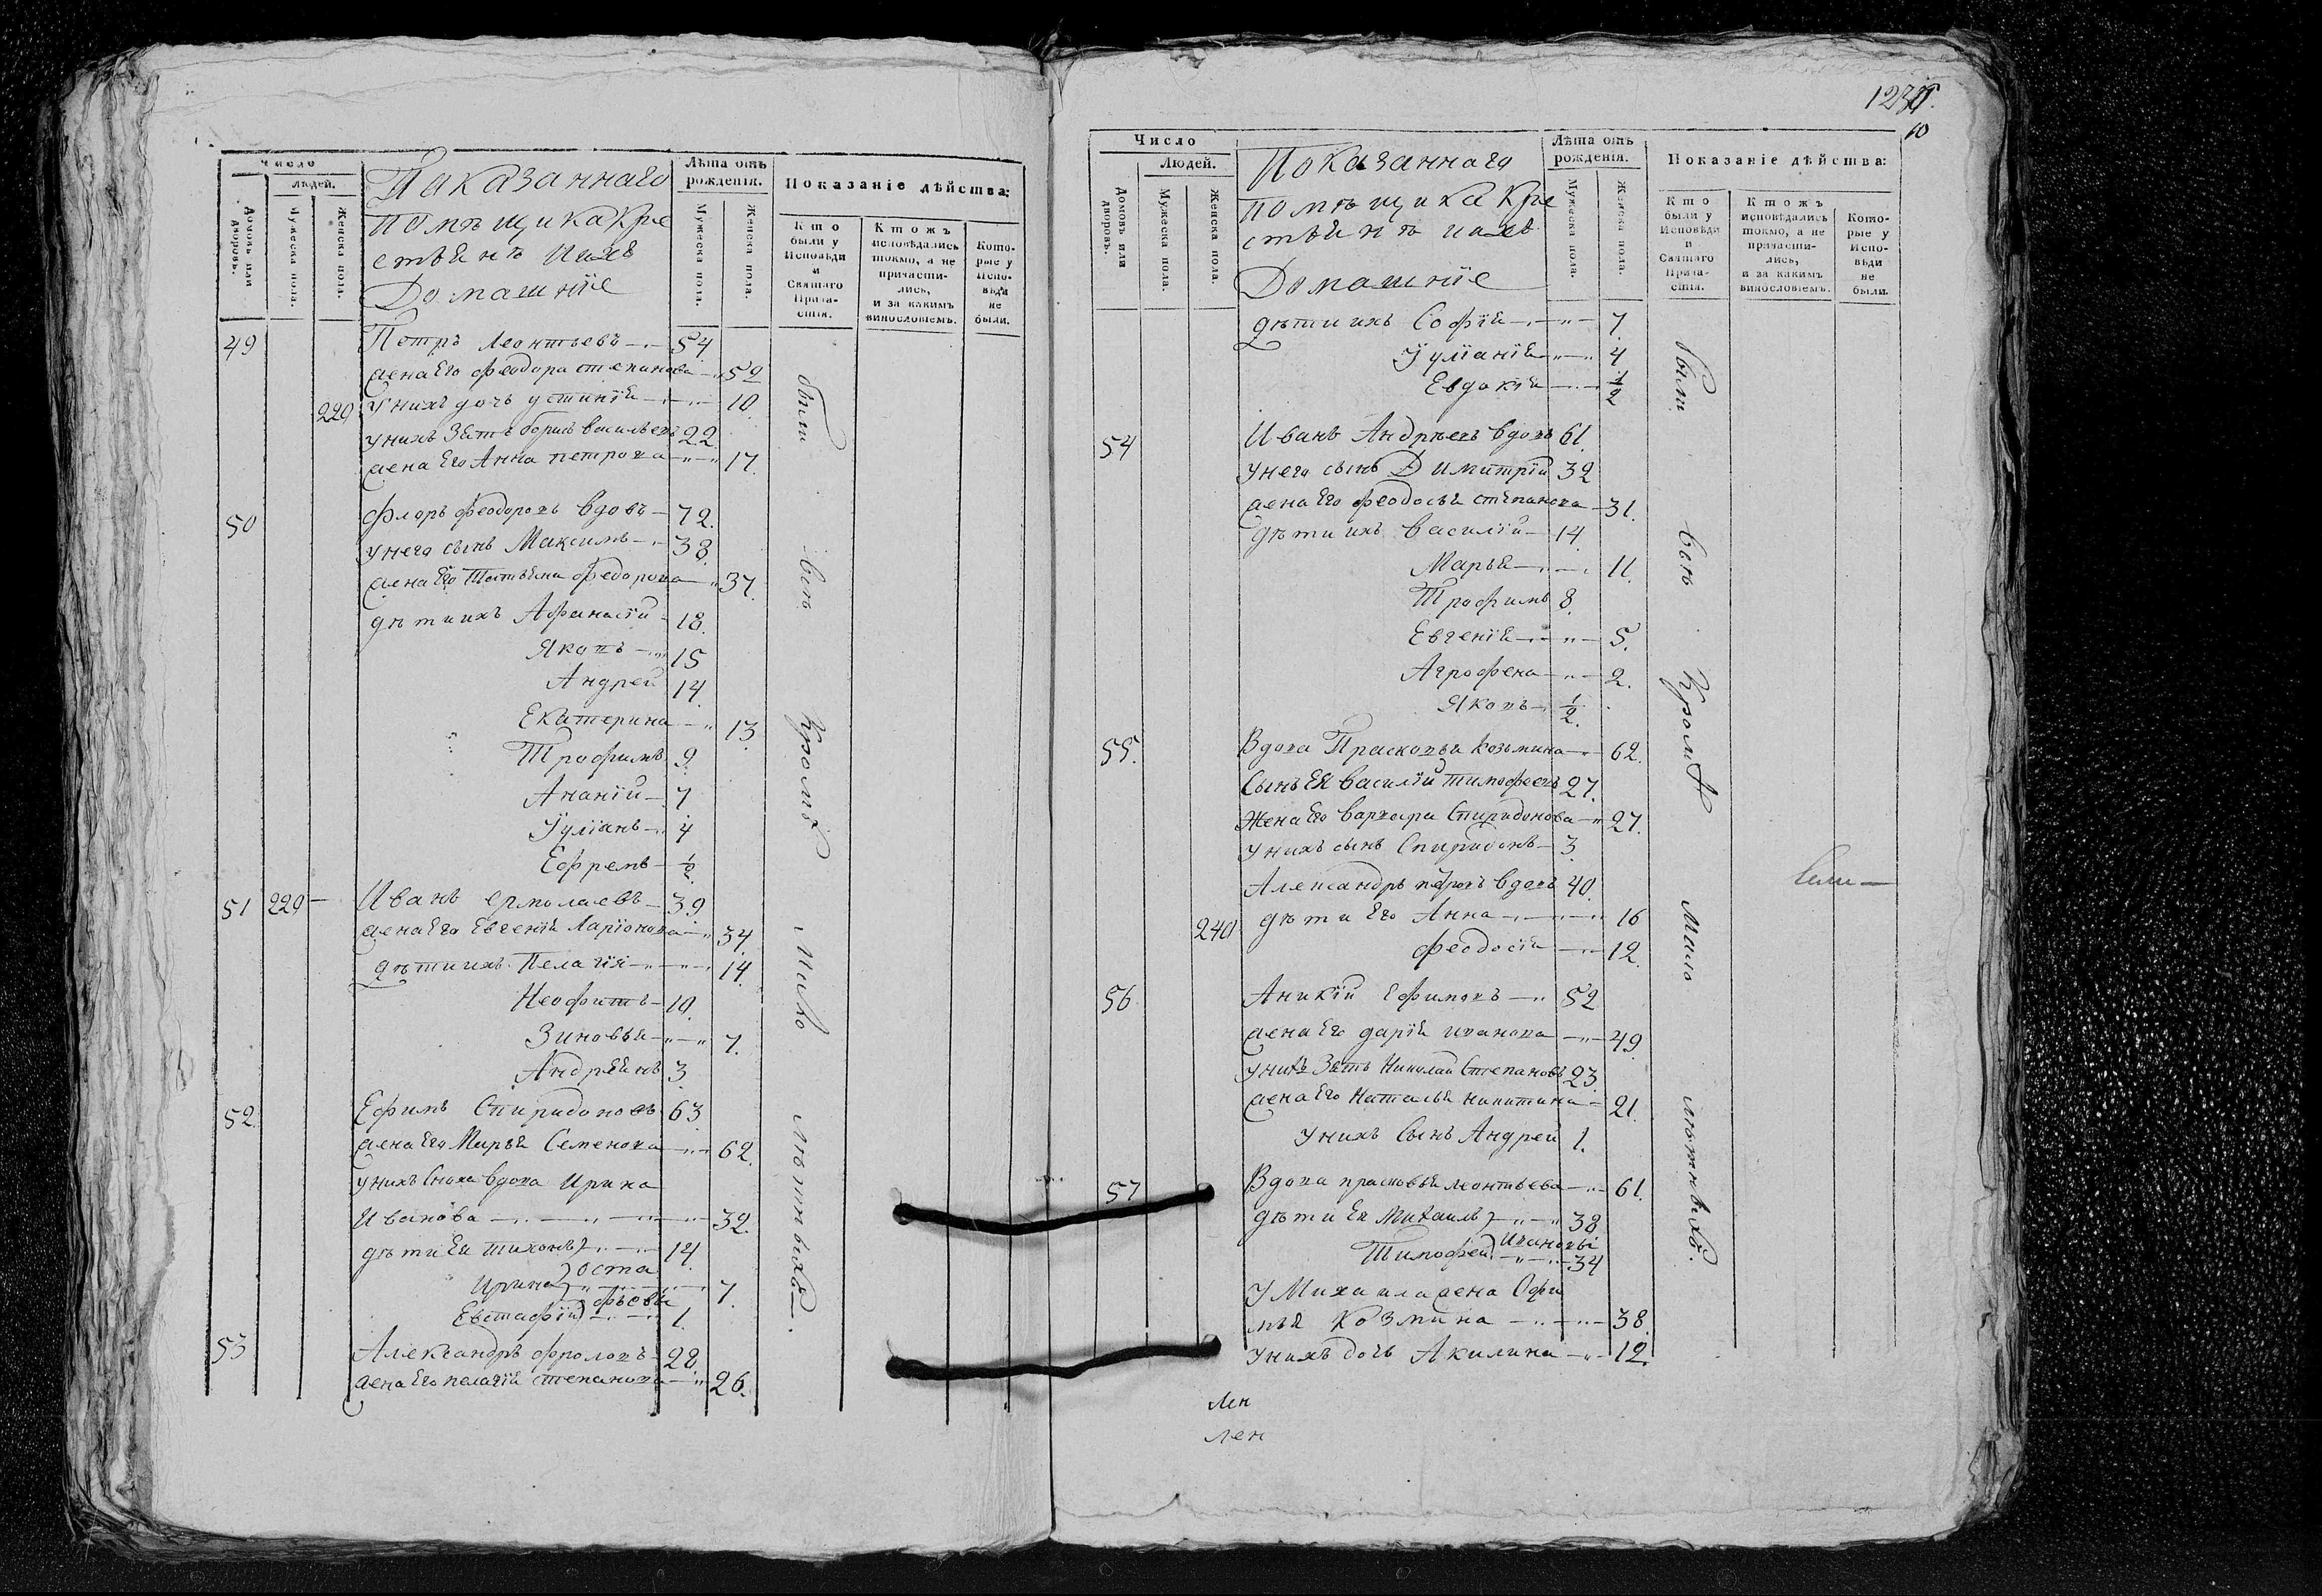 Число
людей.
Домовъ или дворовъ.
Мужеска пола.
Женска пола.
Показаннаго
помѣщика кре
стьянъ и ихъ
Домашніе
Лѣта отъ рожденія.
Мужеска пола.
Женска пола.
Показаніе дѣйства:
Кто были у Исповѣди и Святаго Прича-стія.
Ктожъ исповѣдались токмо, а не причасти-лись, и за какимъ винословіемъ.
Кото-рые у Испо-вѣди не были.
49 Петръ Леонтьевъ 54
жена Его феодора степанова 52
220 У нихъ дочь устинія 10
у нихъ Зять борисъ васильевъ 22
жена Его Анна петрова 17.
50 Флоръ феодоровъ вдовъ 72.
у него сынъ Максимъ 38
жена Его Татьяна федорова 37.
дѣти ихъ Афанасій 18.
Яковъ 15
Андрей 14.
Екатерина 13
Трофимъ 9
Ананій 7
Іуліанъ 4
Ефремъ ½
51 229 Иванъ ермолаевъ 39
жена Его Евгенія Ларіонова 34.
дѣти ихъ Пелагія 14.
Неофитъ 10.
Зиновья 7.
Андреянъ 3
52. Ефимъ Спиридоновъ 63
жена Его Марья Семенова 62.
у нихъ Сноха вдова Ирина
Иванова 32.
дѣти Ея тихонъ 14.
оста
Ирина 7.
фьевы
Евстафій 1.
53 Александръ фроловъ 28.
жена Его пелагія степанова 26.
были всѣ кромѣ мало лѣтныхъ.
10
Число
Людей.
Домовъ или дворовъ.
Мужеска пола.
Женска пола.
Показаннаго
помѣщика кре
стьянъ и ихъ
Домашніе
Лѣта отъ рожденія.
Мужеска пола.
Женска пола.
Показаніе дѣйства:
Кто были у Исповѣди и Святаго Прича-стія.
Ктожъ исповѣдались токмо, а не причасти-лись, и за какимъ винословіемъ.
Кото-рые у Испо-вѣди не были.
дѣти ихъ Софія 7.
Іуліанія 4
Евдокія ½
54 Иванъ Андреевъ вдовъ 61.
у него сынъ Димитрій 32
жена Его феодосья степанова 31.
дѣти ихъ василій 14.
Марья 11.
Трофимъ 8.
Евгенія 5.
Агрофена 2.
Яковъ ½.
55. Вдова Прасковья козьмина 62.
Сынъ Ея василій тимофеевъ 27.
Жена Его варвара Спиридонова 27.
у нихъ сынъ Спиридонъ 3
Александръ петровъ вдовъ 40.
240 дѣти Его Анна 16
феодосія 12.
56 Аникій Ефимовъ 52
жена Его дарія иванова 49
у нихъ Зять Николай Степановъ 23.
жена Его Наталья никитина 21.
У нихъ Сынъ Андрей 1.
57 Вдова прасковья леонтьева 61.
дѣти Ея Михаилъ 38
Ивановы
Тимофей 34
У Михаила жена Офи
мья козмина 38.
У нихъ дочь Акилина 12.
были всѣ кромѣ мало лѣтныхъ.
лен
лен